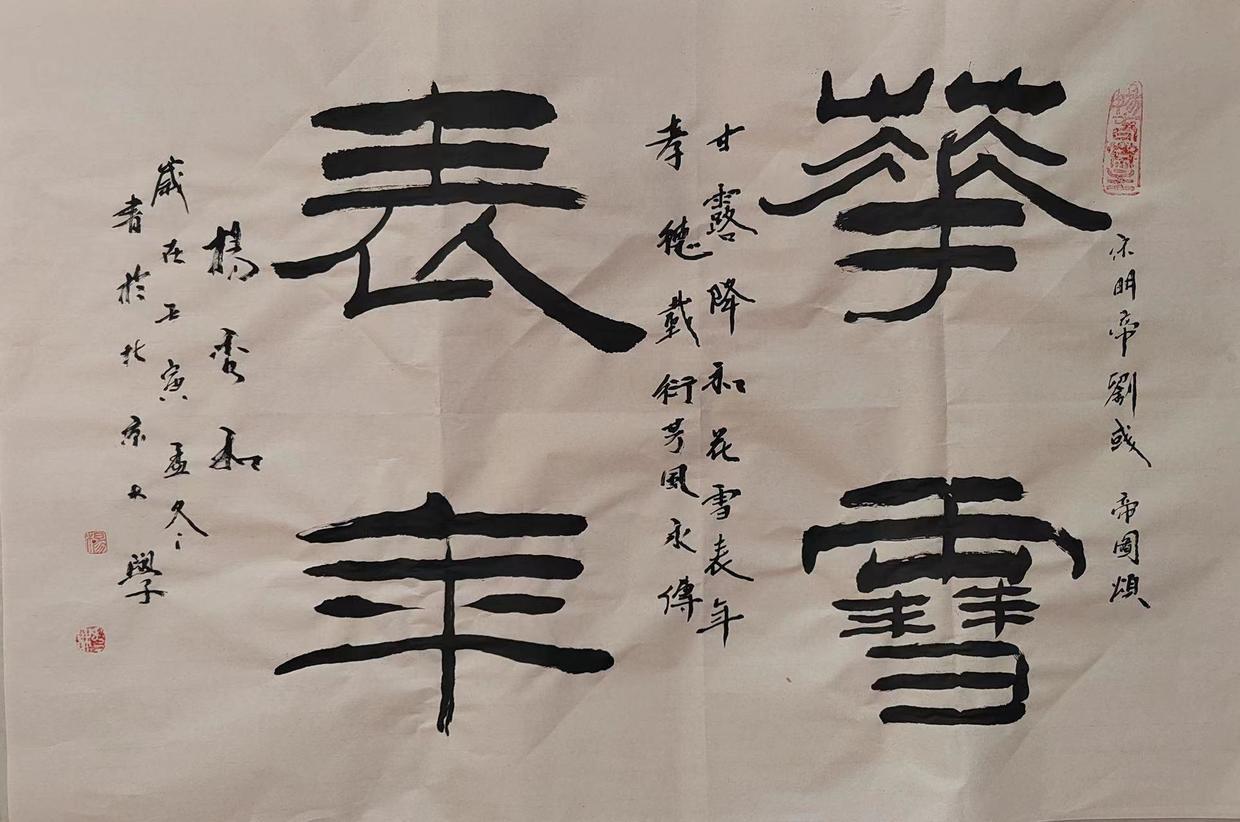 宋明帝劉彧 帝圖頌
華雪
甘露降和花雪表年
孝德載衍芳風永傳
表年
楊雪和
歲在壬寅孟冬
書於北京大學